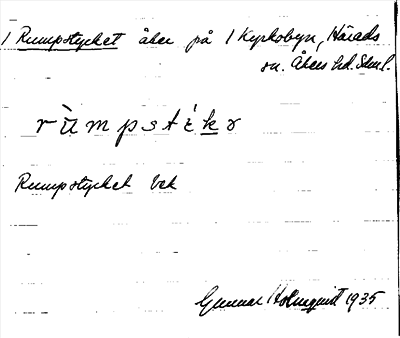 1 Rumpstycket åker på 1 Kyrkobyn, Härads
sn. Åkers hd. Sdml.
rùmpstíkə
Rumpstycket bek
Gunnar Holmquist 1935